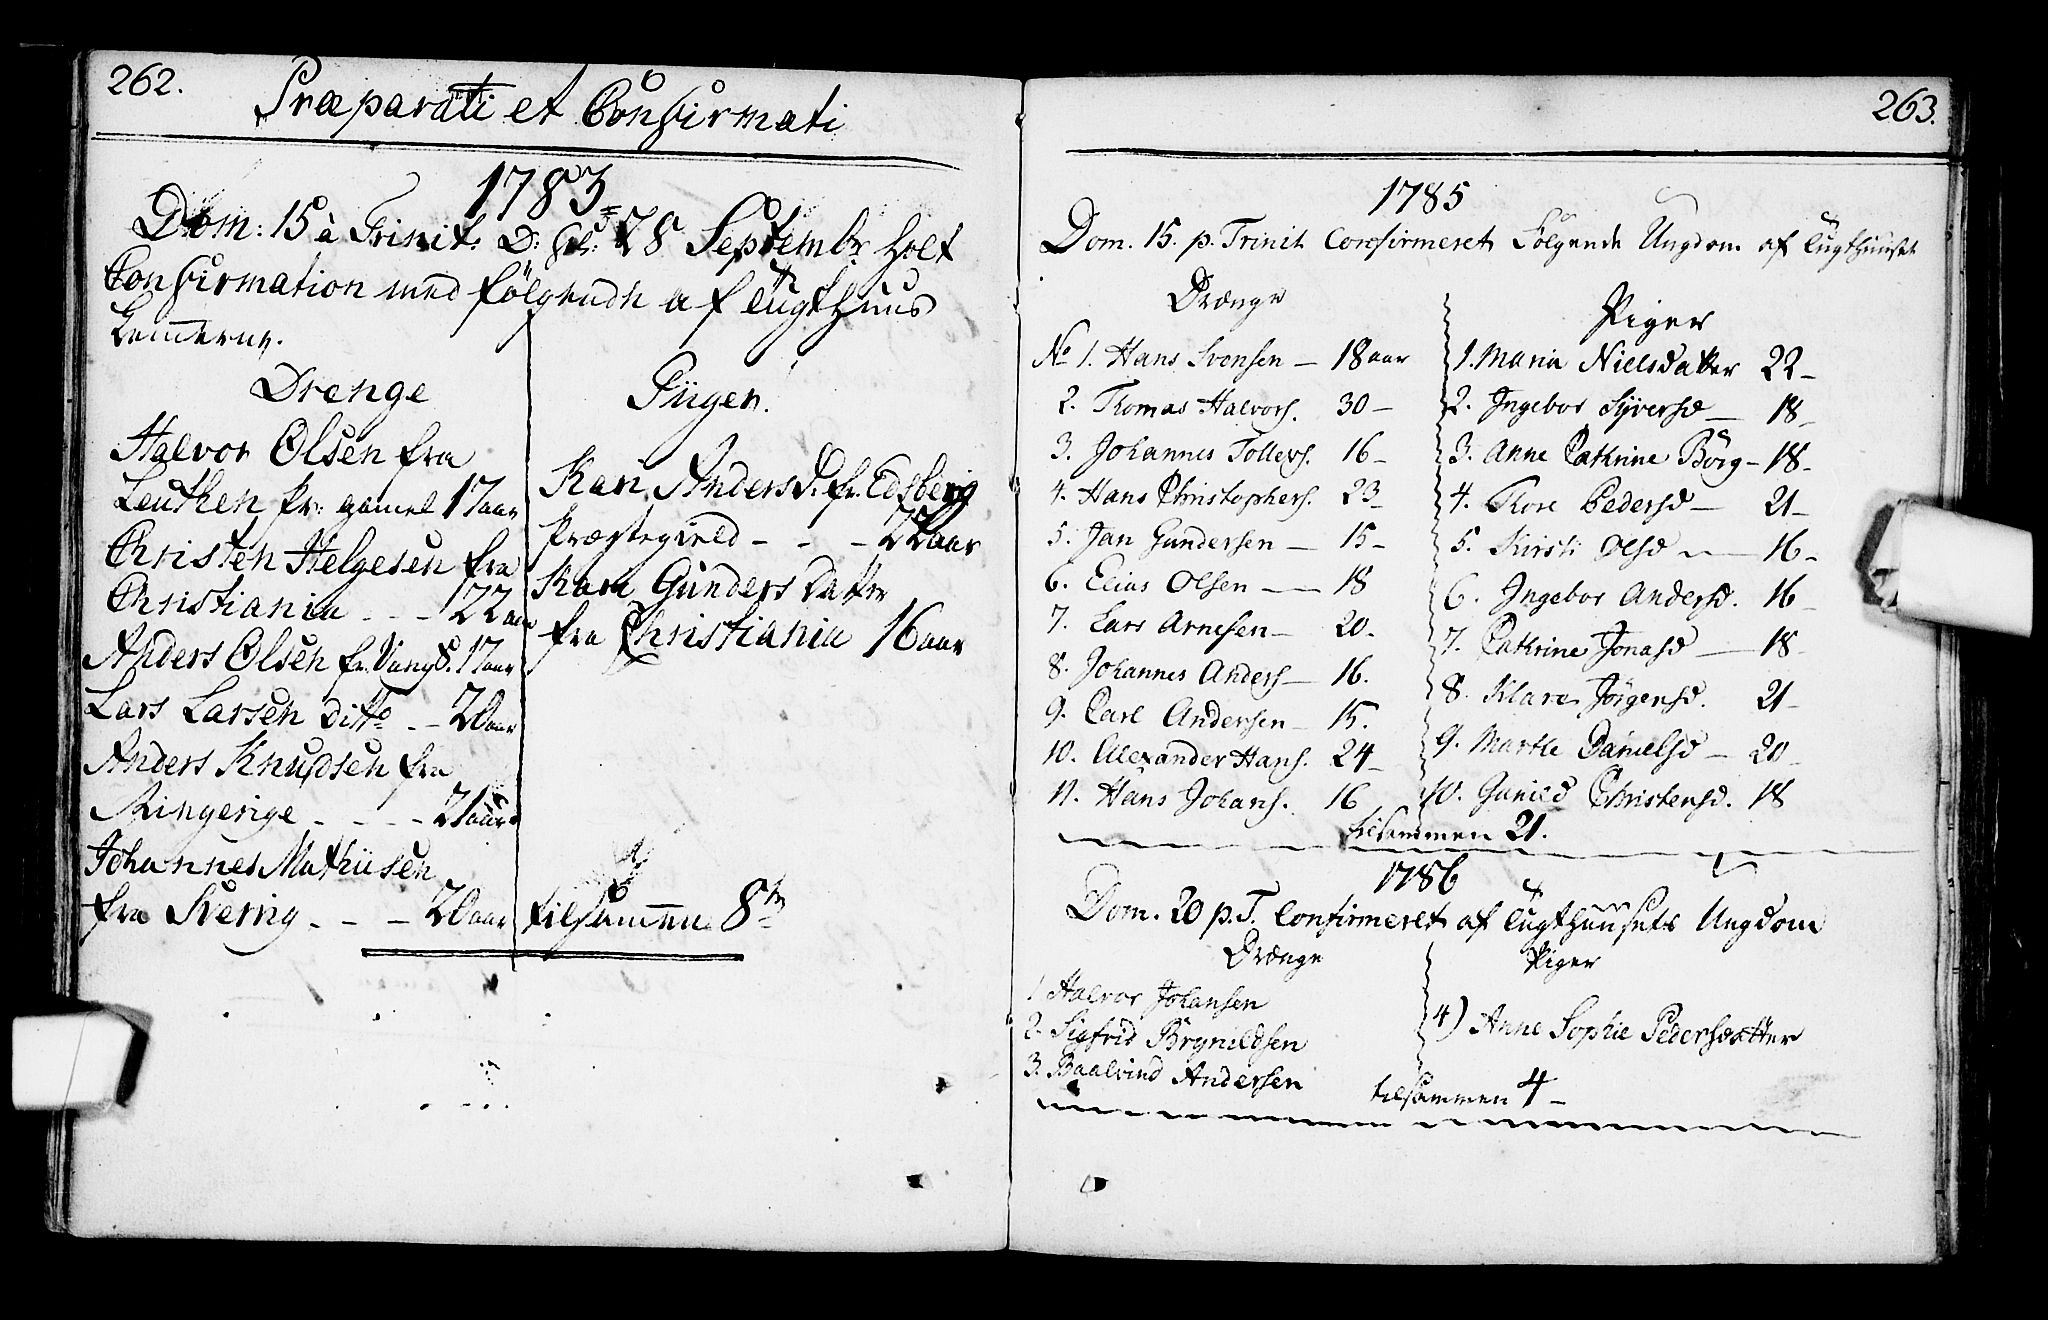 262.
Præparati et Confirmati
1783
Dom: 15 à Trinit: D: 28 Septembr holt
Confirmation med følgende af Tugthuus
Lemmerne.
Drenge
Halvor Olsen fra
Leuthen Pr: gamel 17 aar
Christen Helgesen fra
Christiania - - - 22 aar
Anders Olsen fr. Vangs. 17 aar
Lars Larsen ditto - - 20 aar
Anders Knudsen fra
Ringerige - - - - 21 aar
Johannes Mathiisen
fra Sverrig - - - 20 aar
Piigen.
Kari Andersd. fr. Edsberg
Præstegield - - - 22 aar
Kari Gunders Datter
fra Christiania 16 aar
tilsamen 8te
263.
1785
Dom. 15. p. Trinit Confirmeret Følgende Ungdom af Tugthuuset
Drænge
No 1. Hans Svensen — 18 aar
2. Thomas Halvors. 30 —
3. Johannes Tollevs. 16 —
4. Hans Christophers. 23 —
5. Jan Gundersen — 15 —
6. Elias Olsen — 18
7. Lars Arnesen — 20.
8. Johannes Anders — 16.
9. Carl Andersen — 15.
10. Alexander Hans. 24 —
11. Hans Johans. 16
Piger
1. Maria Nielsdatter 22 —
2. Ingebor Syversd — 18 —
3. Anne Cathrine Börg — 18 —
4. Thore Pedersd — 21 —
5. Kirsti Olsd — 16 —
6. Ingebor Andersd. 16 —
7. Cathrine Jonasd — 18 —
8. Klare Jörgensd. 21 —
9. Marthe Danielsd — 20 —
10. Gunild Christensd. 18
tilsammen 21.
1786
Dom. 20 p. T. Confirmeret af Tugthuusets Ungdom
Drænge
1 Halvor Johansen
2. Sigfrid Brynildsen
3. Baalvind Andersen
Piger
4) Anne Sophie Pedersdatter
tilsammen 4 —